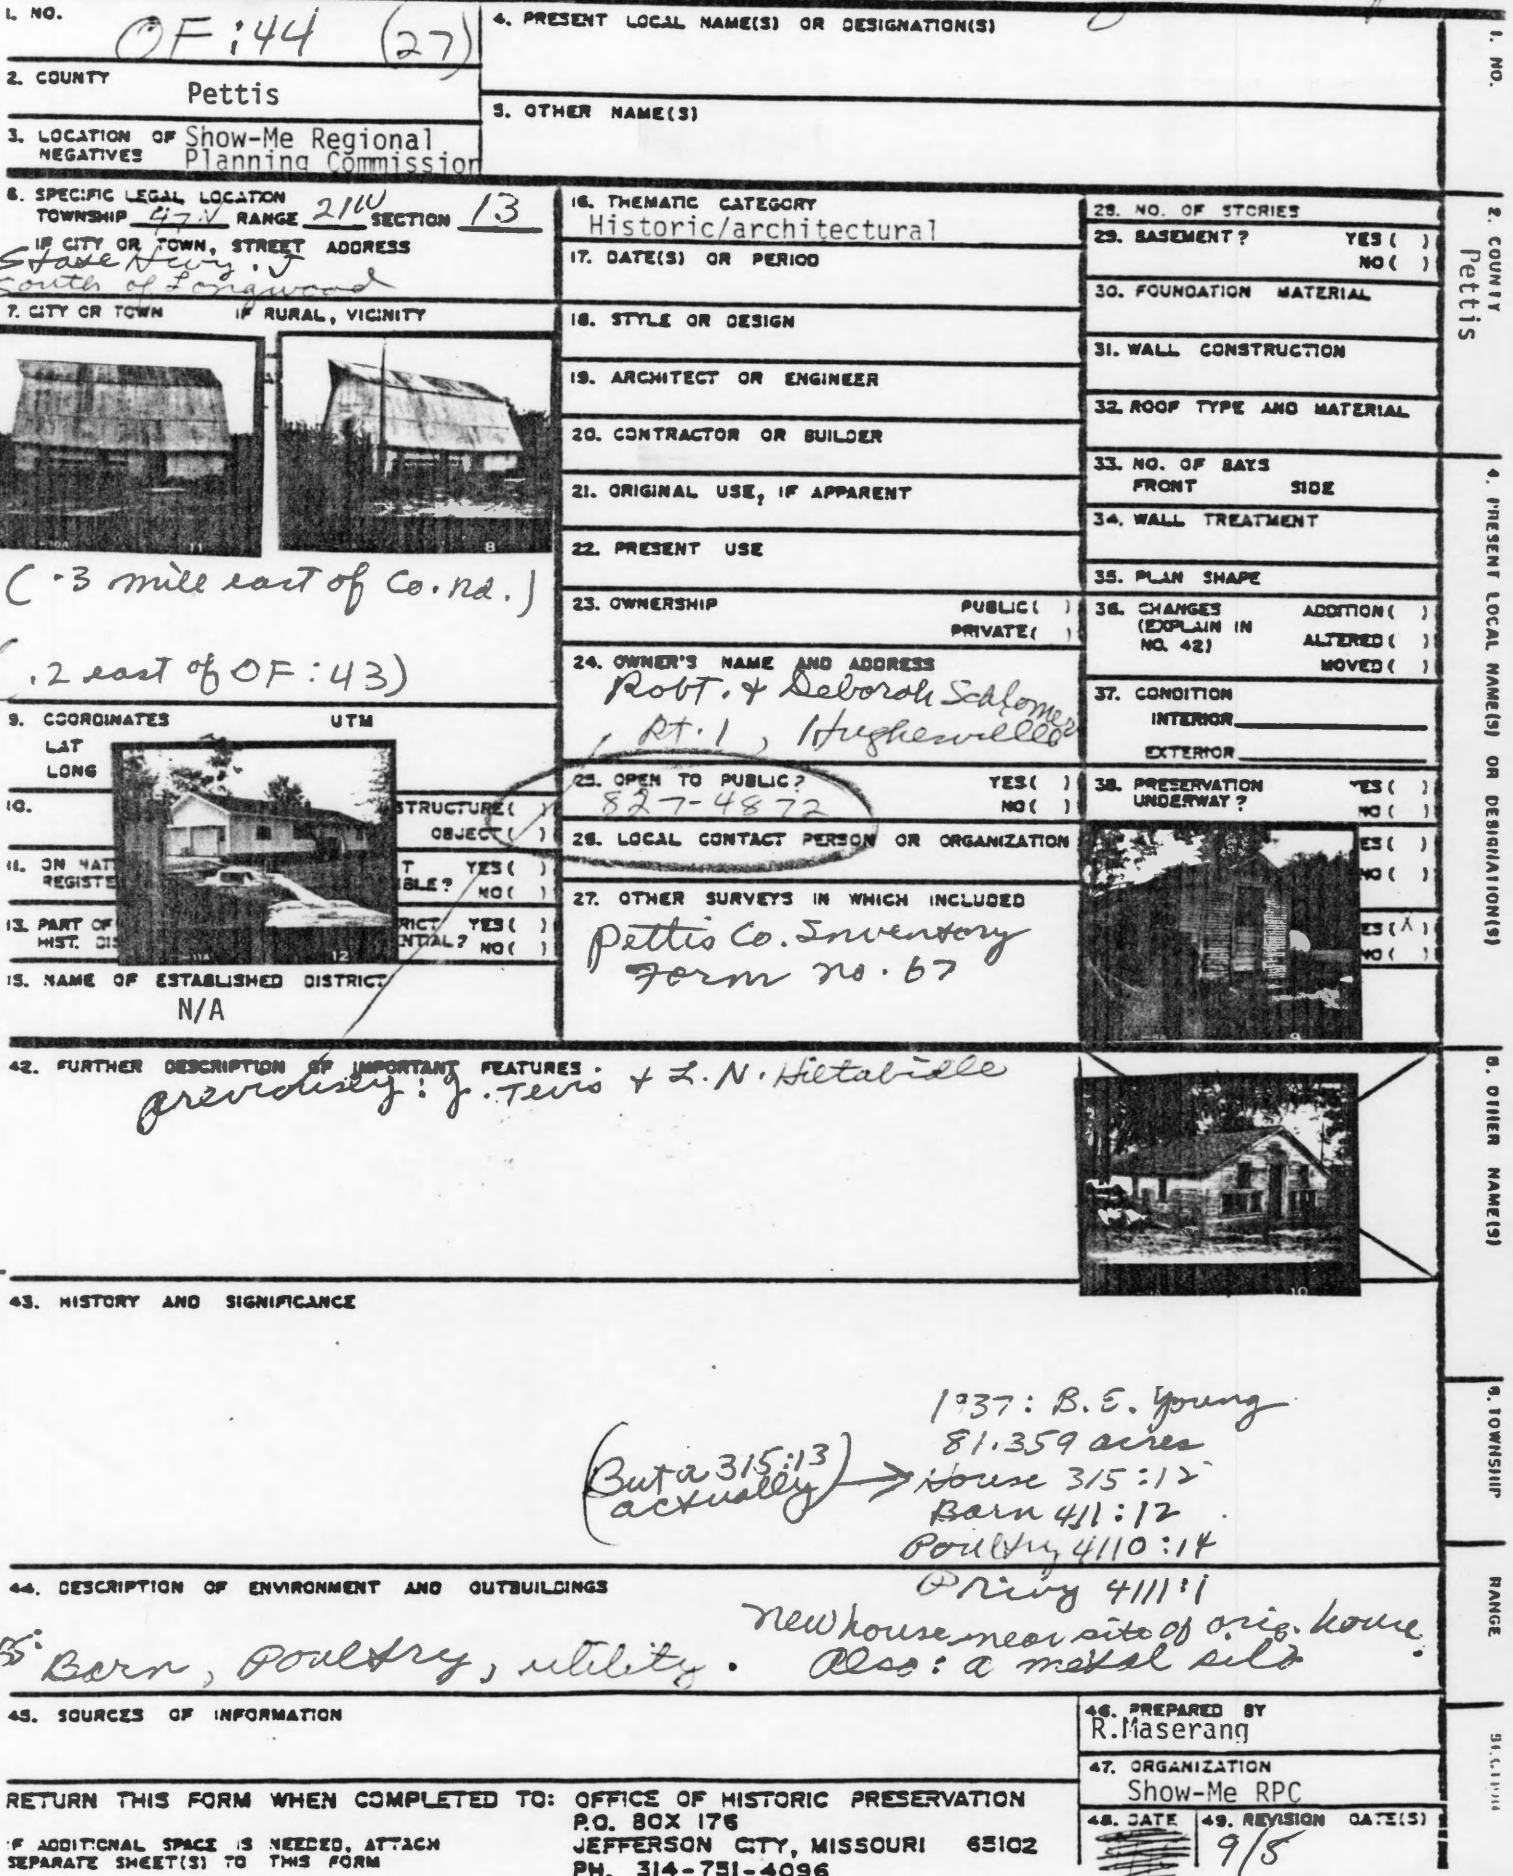 1. NO.
OF:44 (27)
4. PRESENT LOCAL NAME(S) OR DESIGNATION(S)
2. COUNTY
Pettis
5. OTHER NAME(S)
3. LOCATION OF NEGATIVES
Show-Me Regional
Planning Commission
6. SPECIFIC LEGAL LOCATION
TOWNSHIP 47N RANGE 21W SECTION 13
IF CITY OR TOWN, STREET ADDRESS
State Hwy. J
South of Longwood
7. CITY OR TOWN IF RURAL, VICINITY
11
8
(.3 mile east of Co. Rd.)
(.2 east of OF:43)
9. COORDINATES UTM
LAT
LONG
10.
STRUCTURE( )
OBJECT( )
11. ON NAT
REGISTE
YES( )
BLE? NO( )
13. PART OF
HIST. DIS
RICT YES( )
NTIAL? NO( )
12
15. NAME OF ESTABLISHED DISTRICT
N/A
16. THEMATIC CATEGORY
Historic/architectural
17. DATE(S) OR PERIOD
18. STYLE OR DESIGN
19. ARCHITECT OR ENGINEER
20. CONTRACTOR OR BUILDER
21. ORIGINAL USE, IF APPARENT
22. PRESENT USE
23. OWNERSHIP PUBLIC( )
PRIVATE( )
24. OWNER'S NAME AND ADDRESS
Robt. & Deborah
Rt. 1, Hughesville
25. OPEN TO PUBLIC? YES( )
827-4872 NO( )
26. LOCAL CONTACT PERSON OR ORGANIZATION
27. OTHER SURVEYS IN WHICH INCLUDED
Pettis Co. Inventory
Form no. 67
28. NO. OF STORIES
29. BASEMENT? YES( )
NO( )
30. FOUNDATION MATERIAL
31. WALL CONSTRUCTION
32. ROOF TYPE AND MATERIAL
33. NO. OF BAYS
FRONT SIDE
34. WALL TREATMENT
35. PLAN SHAPE
36. CHANGES ADDITION( )
(EXPLAIN IN ALTERED( )
NO. 42) MOVED( )
37. CONDITION
INTERIOR
EXTERIOR
38. PRESERVATION YES( )
UNDERWAY? NO( )
ES( )
NO( )
ES(X)
NO( )
9
42. FURTHER DESCRIPTION OF IMPORTANT FEATURES
previously: J. Tevis & L.N. Hiltabidle
10
43. HISTORY AND SIGNIFICANCE
1937: B.E. Young
81.359 acres
(But a 315:13
actually)
House 315:12
Barn 411:12
Poultry 4110:14
Privy 4111:1
44. DESCRIPTION OF ENVIRONMENT AND OUTBUILDINGS
New house near site of orig. house.
Barn, poultry, utility. Also: a metal silo
45. SOURCES OF INFORMATION
46. PREPARED BY
R.Maserang
47. ORGANIZATION
Show-Me RPC
48. DATE
49. REVISION DATE(S)
9/5
RETURN THIS FORM WHEN COMPLETED TO: OFFICE OF HISTORIC PRESERVATION
P.O. BOX 176
JEFFERSON CITY, MISSOURI 65102
PH. 314-751-4096
IF ADDITIONAL SPACE IS NEEDED, ATTACH
SEPARATE SHEET(S) TO THIS FORM
1. NO.
2. COUNTY
Pettis
4. PRESENT LOCAL NAME(S) OR DESIGNATION(S)
5. OTHER NAME(S)
6. TOWNSHIP
RANGE
SECTION